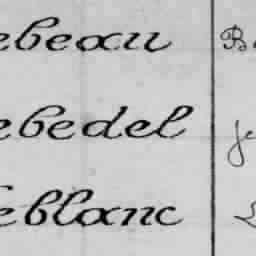 ebeau
ebedel
eblanc